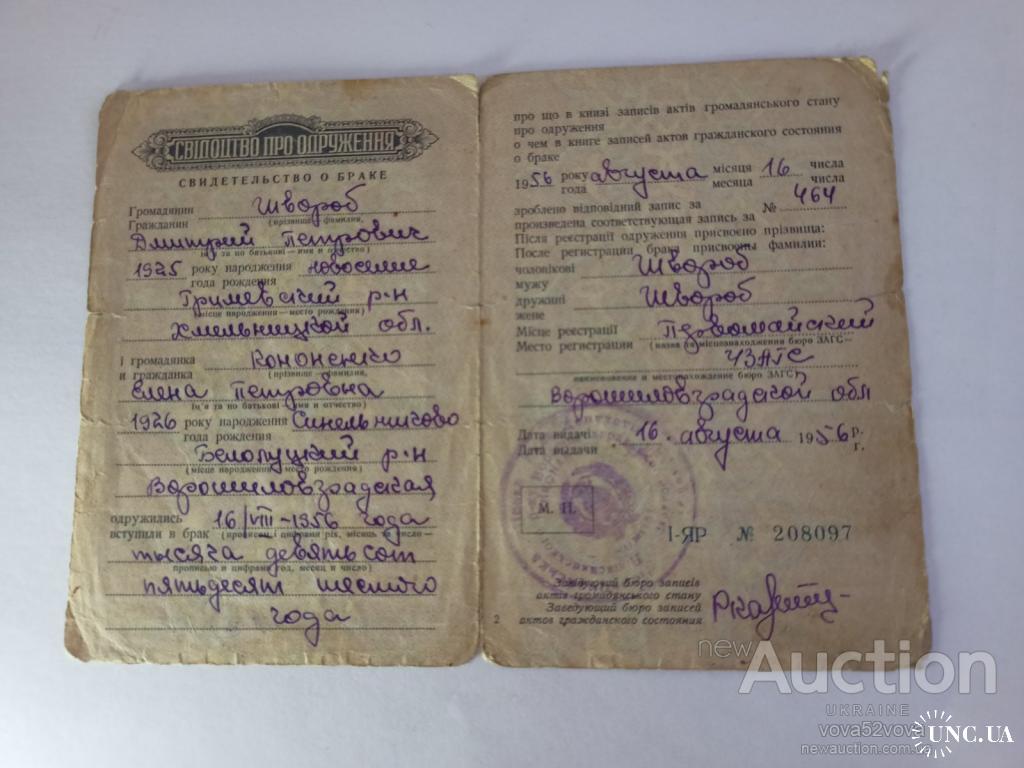 СВІДОЦТВО ПРО ОДРУЖЕННЯ
СВИДЕТЕЛЬСТВО О БРАКЕ
Громадянин
Гражданин Швороб
(прізвище — фамилия,
Дмитрий Петрович
ім'я та по батькові — имя и отчество)
1925 року народження Новоселие
года рождения
Гримевский р-н
(місце народження — место рождения)
Хмельницкой обл.
і громадянка
и гражданка Кононенко
(прізвище — фамилия,
Елена Петровна
ім'я та по батькові — имя и отчество)
1926 року народження Синельниково
года рождения
Белолуцкий р-н
(місце народження — место рождения)
Ворошиловградская
одружились
вступили в брак 16/VIII-1956 года
(прописом і цифрами рік, місяць та число —
тысяча девятьсот
прописью и цифрами год, месяц и число)
пятьдесят шестого
года
про що в книзі записів актів громадянського стану
про одруження
о чем в книге записей актов гражданского состояния
о браке
1956 року августа місяця 16 числа
года месяца числа
зроблено відповідний запис за
произведена соответствующая запись за № 464
Після реєстрації одруження присвоєно прізвища:
После регистрации брака присвоены фамилии:
чоловікові
мужу Швороб
дружині
жене Швороб
Місце реєстрації Первомайский
Место регистрации (назва та місцезнаходження бюро ЗАГС —
ЧЗАГС
наименование и местонахождение бюро ЗАГС)
Ворошиловградской обл
Дата видачі
Дата выдачи 16. августа 1956 р.
г.
М. П.
І-ЯР № 208097
Завідуючий бюро записів
актів громадянського стану
Заведующий бюро записей
актов гражданского состояния
2
newAuction
UKRAINE
vova52vova
newauction.com.ua
UNC.UA